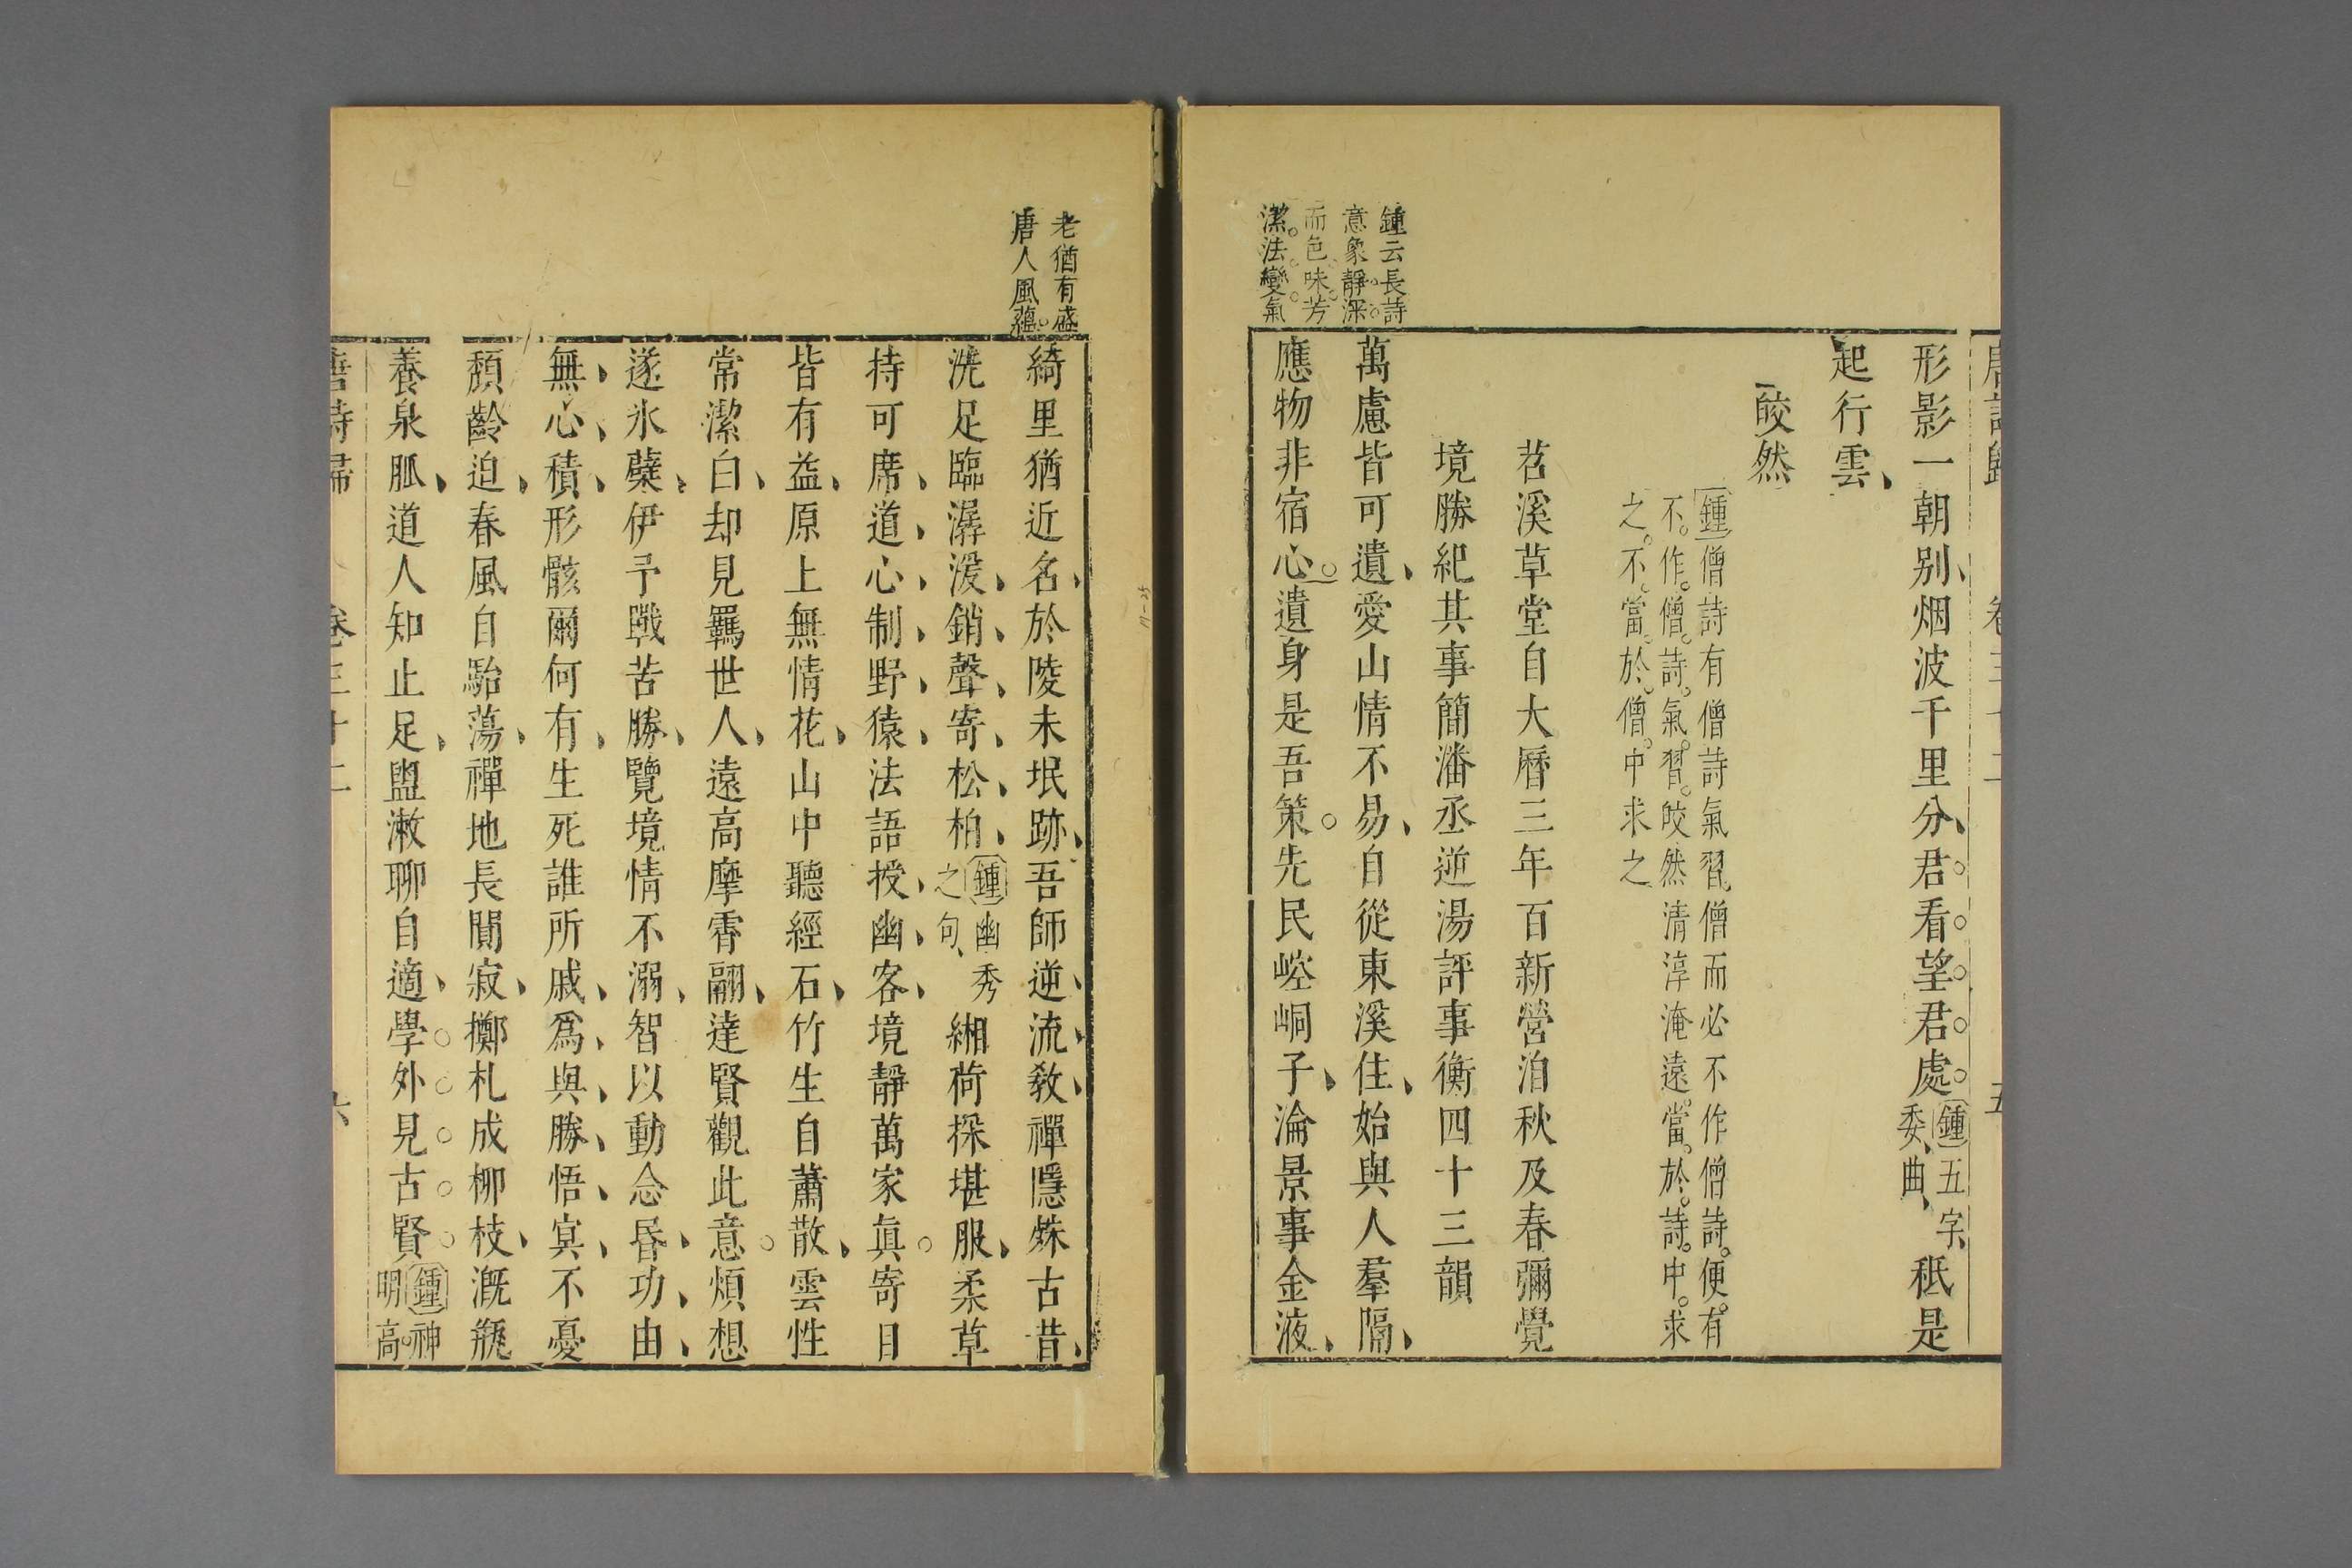 唐詩歸
卷三十二
五
形影一朝别烟波千里分君看望君處
鍾五字
委曲
秪是
起行雲
皎然
鍾僧詩有僧詩氣習僧而必不作僧詩便有
不作僧詩氣習皎然清淳淹遠當於詩中求
之不當於僧中求之
苕溪草堂自大曆三年百新營洎秋及春彌覺
境勝紀其事簡潘丞逆湯評事衡四十三韻
鍾云長詩
意象靜深
而色味芳
潔法變氣
萬慮皆可遺愛山情不易自從東溪住始與人羣隔
應物非宿心遺身是吾策先民崆峒子淪景事金液
老猶有盛
唐人風蘊
綺里猶近名於陵未垊跡吾師逆流教禪隱殊古昔
洗足臨潺湲銷聲寄松柏
鍾幽秀
之句
緗荷採堪服柔草
持可席道心制野猿法語授幽客境靜萬家真寄目
皆有益原上無情花山中聽經石竹生自蕭散雲性
常潔白却見羈世人遠高摩霄翮達賢觀此意煩想
遂氷蘗伊予戰苦勝覽境情不溺智以動念昏功由
無心積形骸爾何有生死誰所戚爲與勝悟冥不憂
頹齡迫春風自駘蕩禪地長閴寂擲札成柳枝漑瓶
養泉脈道人知止足盥漱聊自適學外見古賢
鍾神
高明
唐詩歸
卷三十二
六